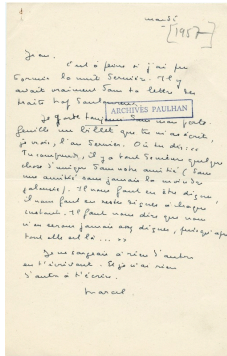 mardi
[1957]
Jean.
C'est à peine si j'ai pu
dormir la nuit dernière. Il y
avait vraiment dans ta lettre des
traits trop
ARCHIVES PAULHAN
Je porte toujours dans mon porte
feuille un billet que tu m'as écrit,
je crois, l'an dernier. Où tu dis: "
Tu comprends, il y a tout de même quelque
chose d'unique dans notre amitié (dans
une amitié sans jamais la moindre
). Il nous faut en être dignes,
il nous faut en rester dignes à chaque
instant. Il faut nous dire que nous
n'en serons jamais assez dignes, puisqu'après
tout elle est là ..."
Je ne songeais à rien d'autre
en t'écrivant. Et je n'ai rien
d'autre à t'écrire.
Marcel